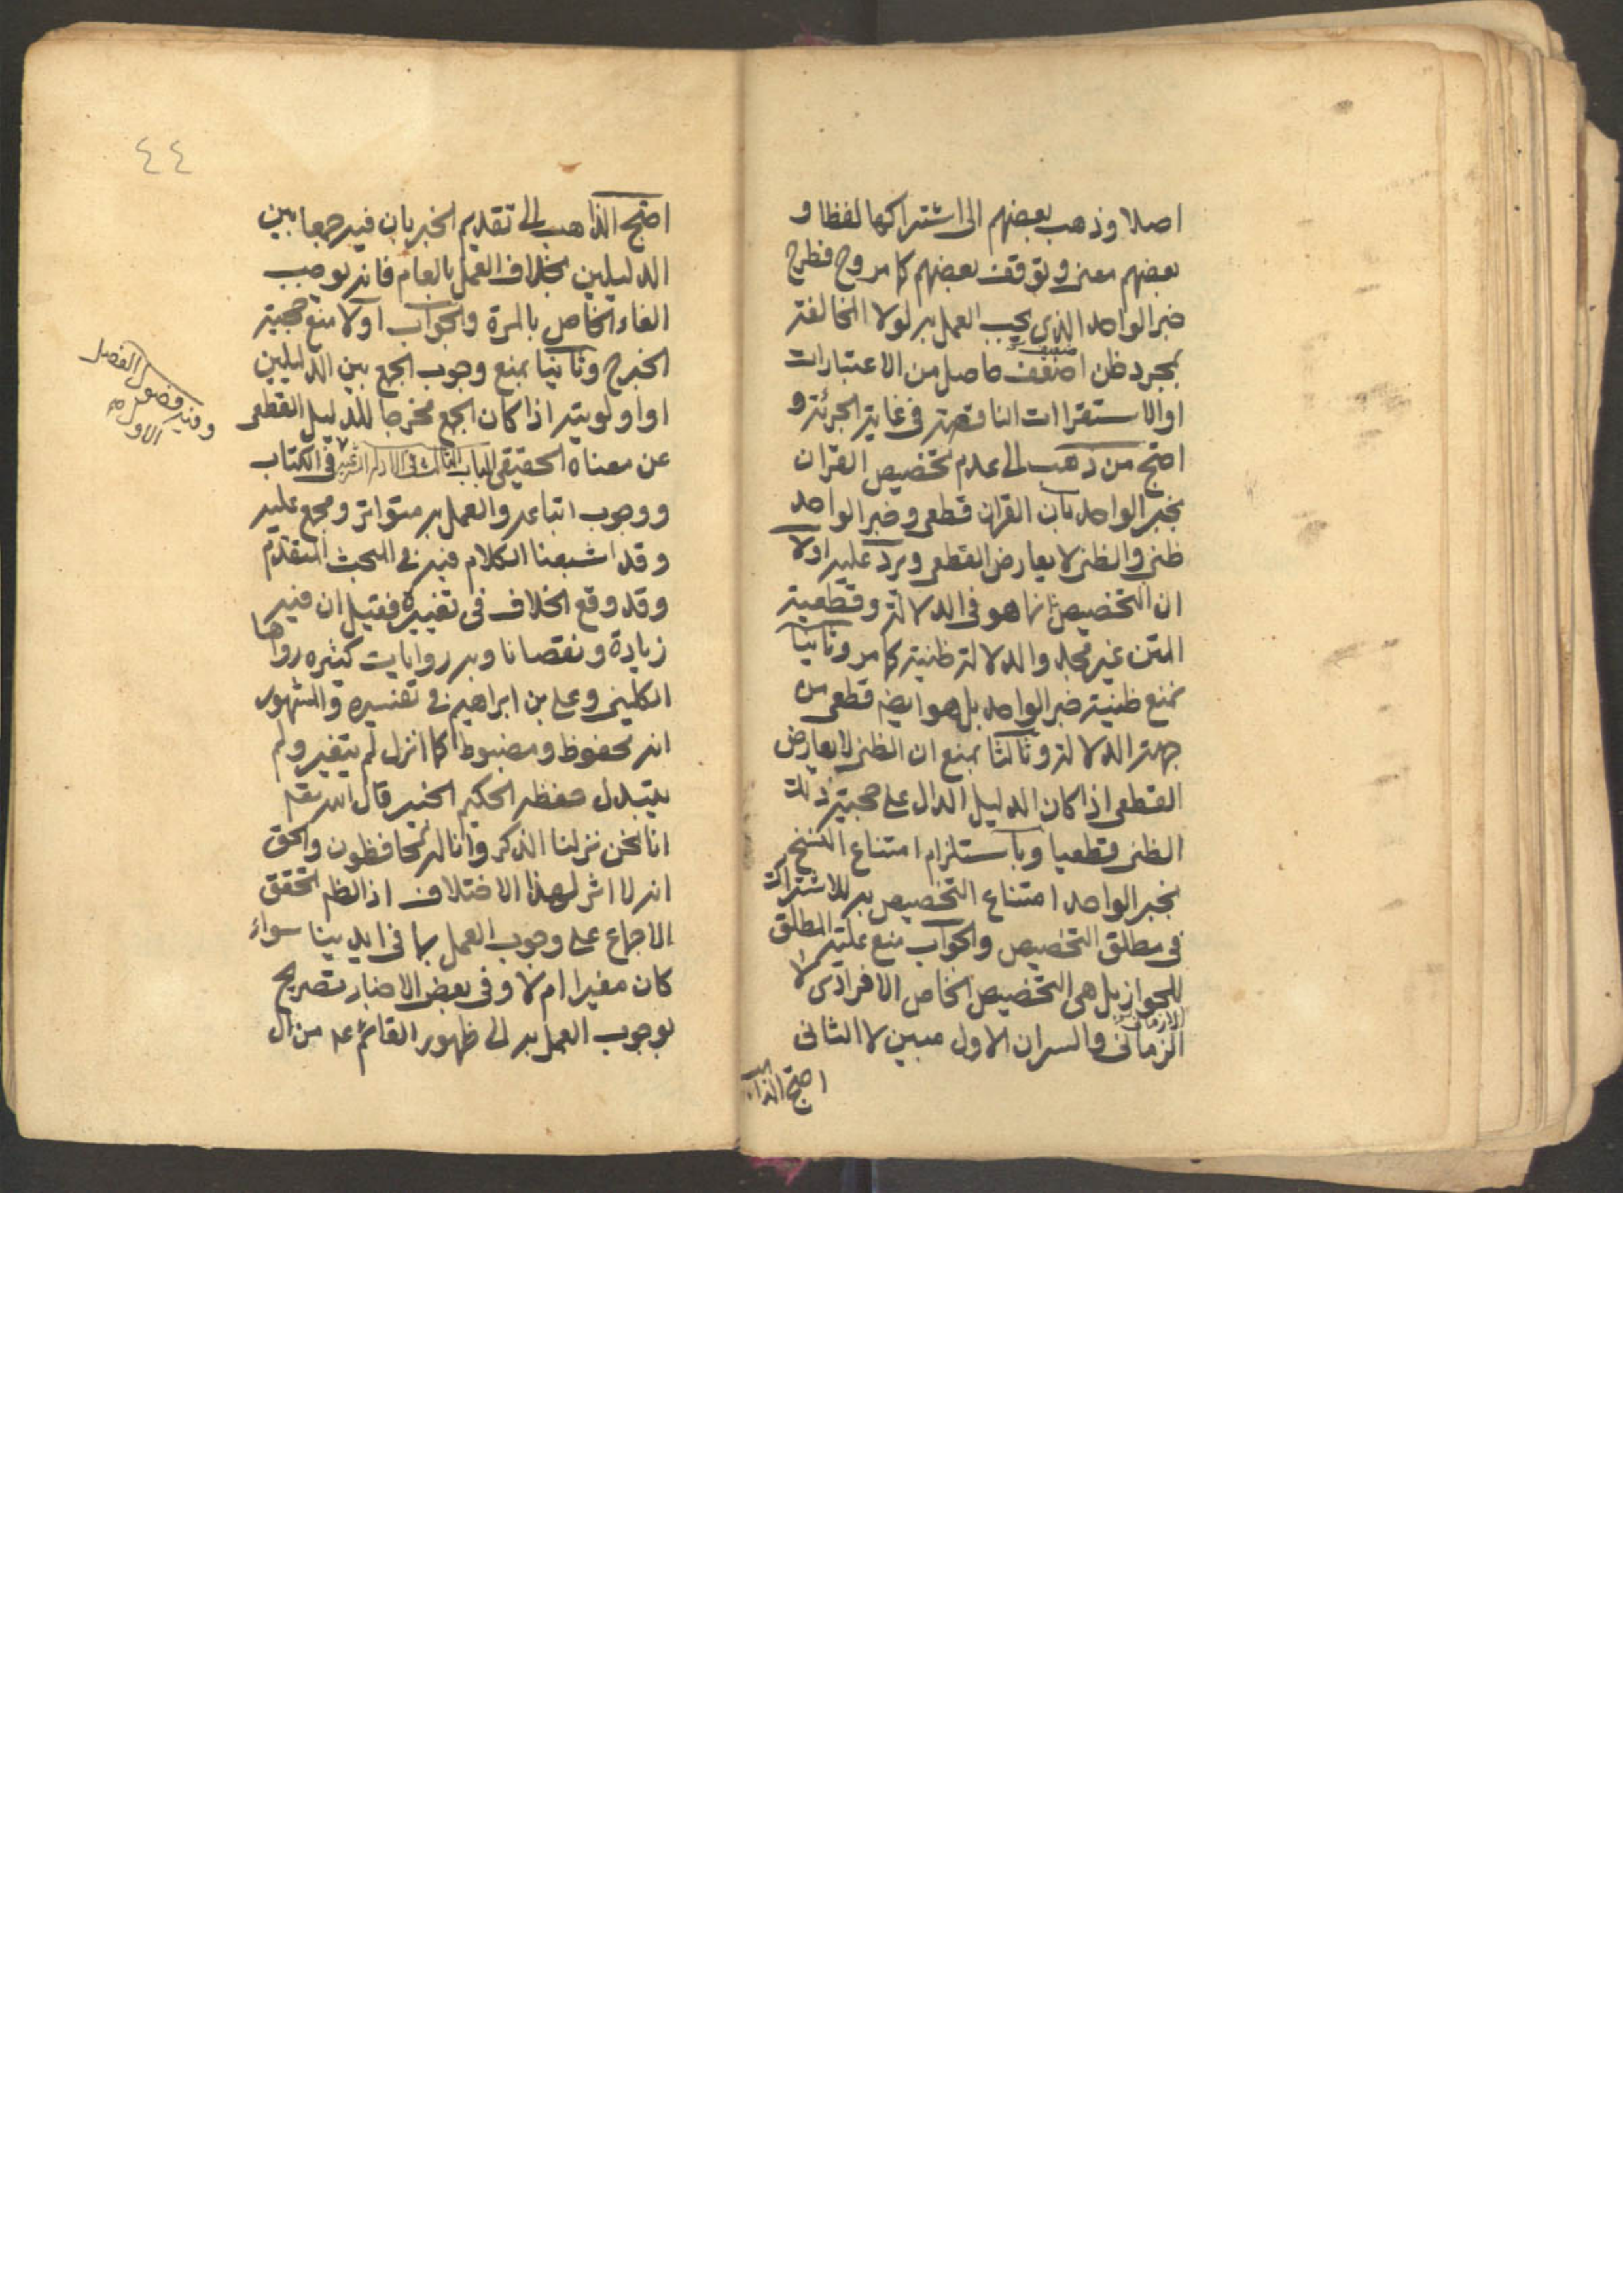 اصلا وذهب بعضهم الى اشتراكها لفظا و
بعضهم معنى وتوقف بعضهم كما مر وح فطرح
خبر الواحد الذى يجب العمل به لولا المخالفة
بمجرد ظن اضعف ضعيف حاصل من الاعتبارات
او الاستقراات الناقصة فى غاية الجرئة و
احتج من ذهب الى عدم تخصيص القران
بخبر الواحد بان القران قطعى وخبر الواحد
ظنى والظنى لا يعارض القطعى ويرد عليه اولا
ان التخصيص انما هو فى الدلالة وقطعية
المتن غير مجد والدلالة ظنية كما مر وثانيا
نمنع ظنية خبر الواحد بل هو ايضا قطعى من
جهة الدلالة وثالثا نمنع ان الظنى لا يعارض
القطعى اذا كان الدليل الدال على حجية ذلك
الظنى قطعيا وباستلزام امتناع النسخ
بخبر الواحد امتناع التخصيص به للاشتراك
فى مطلق التخصيص والجواب منع علية المطلق
للجواز بل هى التخصيص الخاص الافرادى لا
الازمانى
الزمانى والسر ان الاول مبين لا الثانى
احتج الذاهب
٤٤
احتج الذاهب الى تقديم الخبر بان فيه جمعا بين
الدليلين بخلاف العمل بالعام فانه يوجب
الغاء الخاص بالمرة والجواب اولا منع حجية
الخبر ح وثانيا نمنع وجوب الجمع بين الدليلين
او اولويته اذا كان الجمع مخرجا للدليل القطعى
عن معناه الحقيقى الباب الثالث فى الادلة الشرعية فى الكتاب
وفيه فصول الفصل
الاول صح
ووجوب اتباعه والعمل به متواتر ومجمع عليه
وقد اشبعنا الكلام فيه فى البحث المتقدم
وقد وقع الخلاف فى تغييره فقيل ان فيه
زيادة ونقصانا وبه روايات كثيره رواها
الكلينى وعلى بن ابراهيم فى تفسيره والمشهور
انه محفوظ ومضبوط كما انزل لم يتغير ولم
يتبدل حفظه الحكيم الخبير قال الله تعه
انا نحن نزلنا الذكر وانا له لحافظون والحق
انه لا اثر لهذا الاختلاف اذ الظم تحقق
الاجماع على وجوب العمل بما فى ايدينا سواء
كان مغيرا ام لا وفى بعض الاخبار تصريح
بوجوب العمل به الى ظهور القائم عه من ال